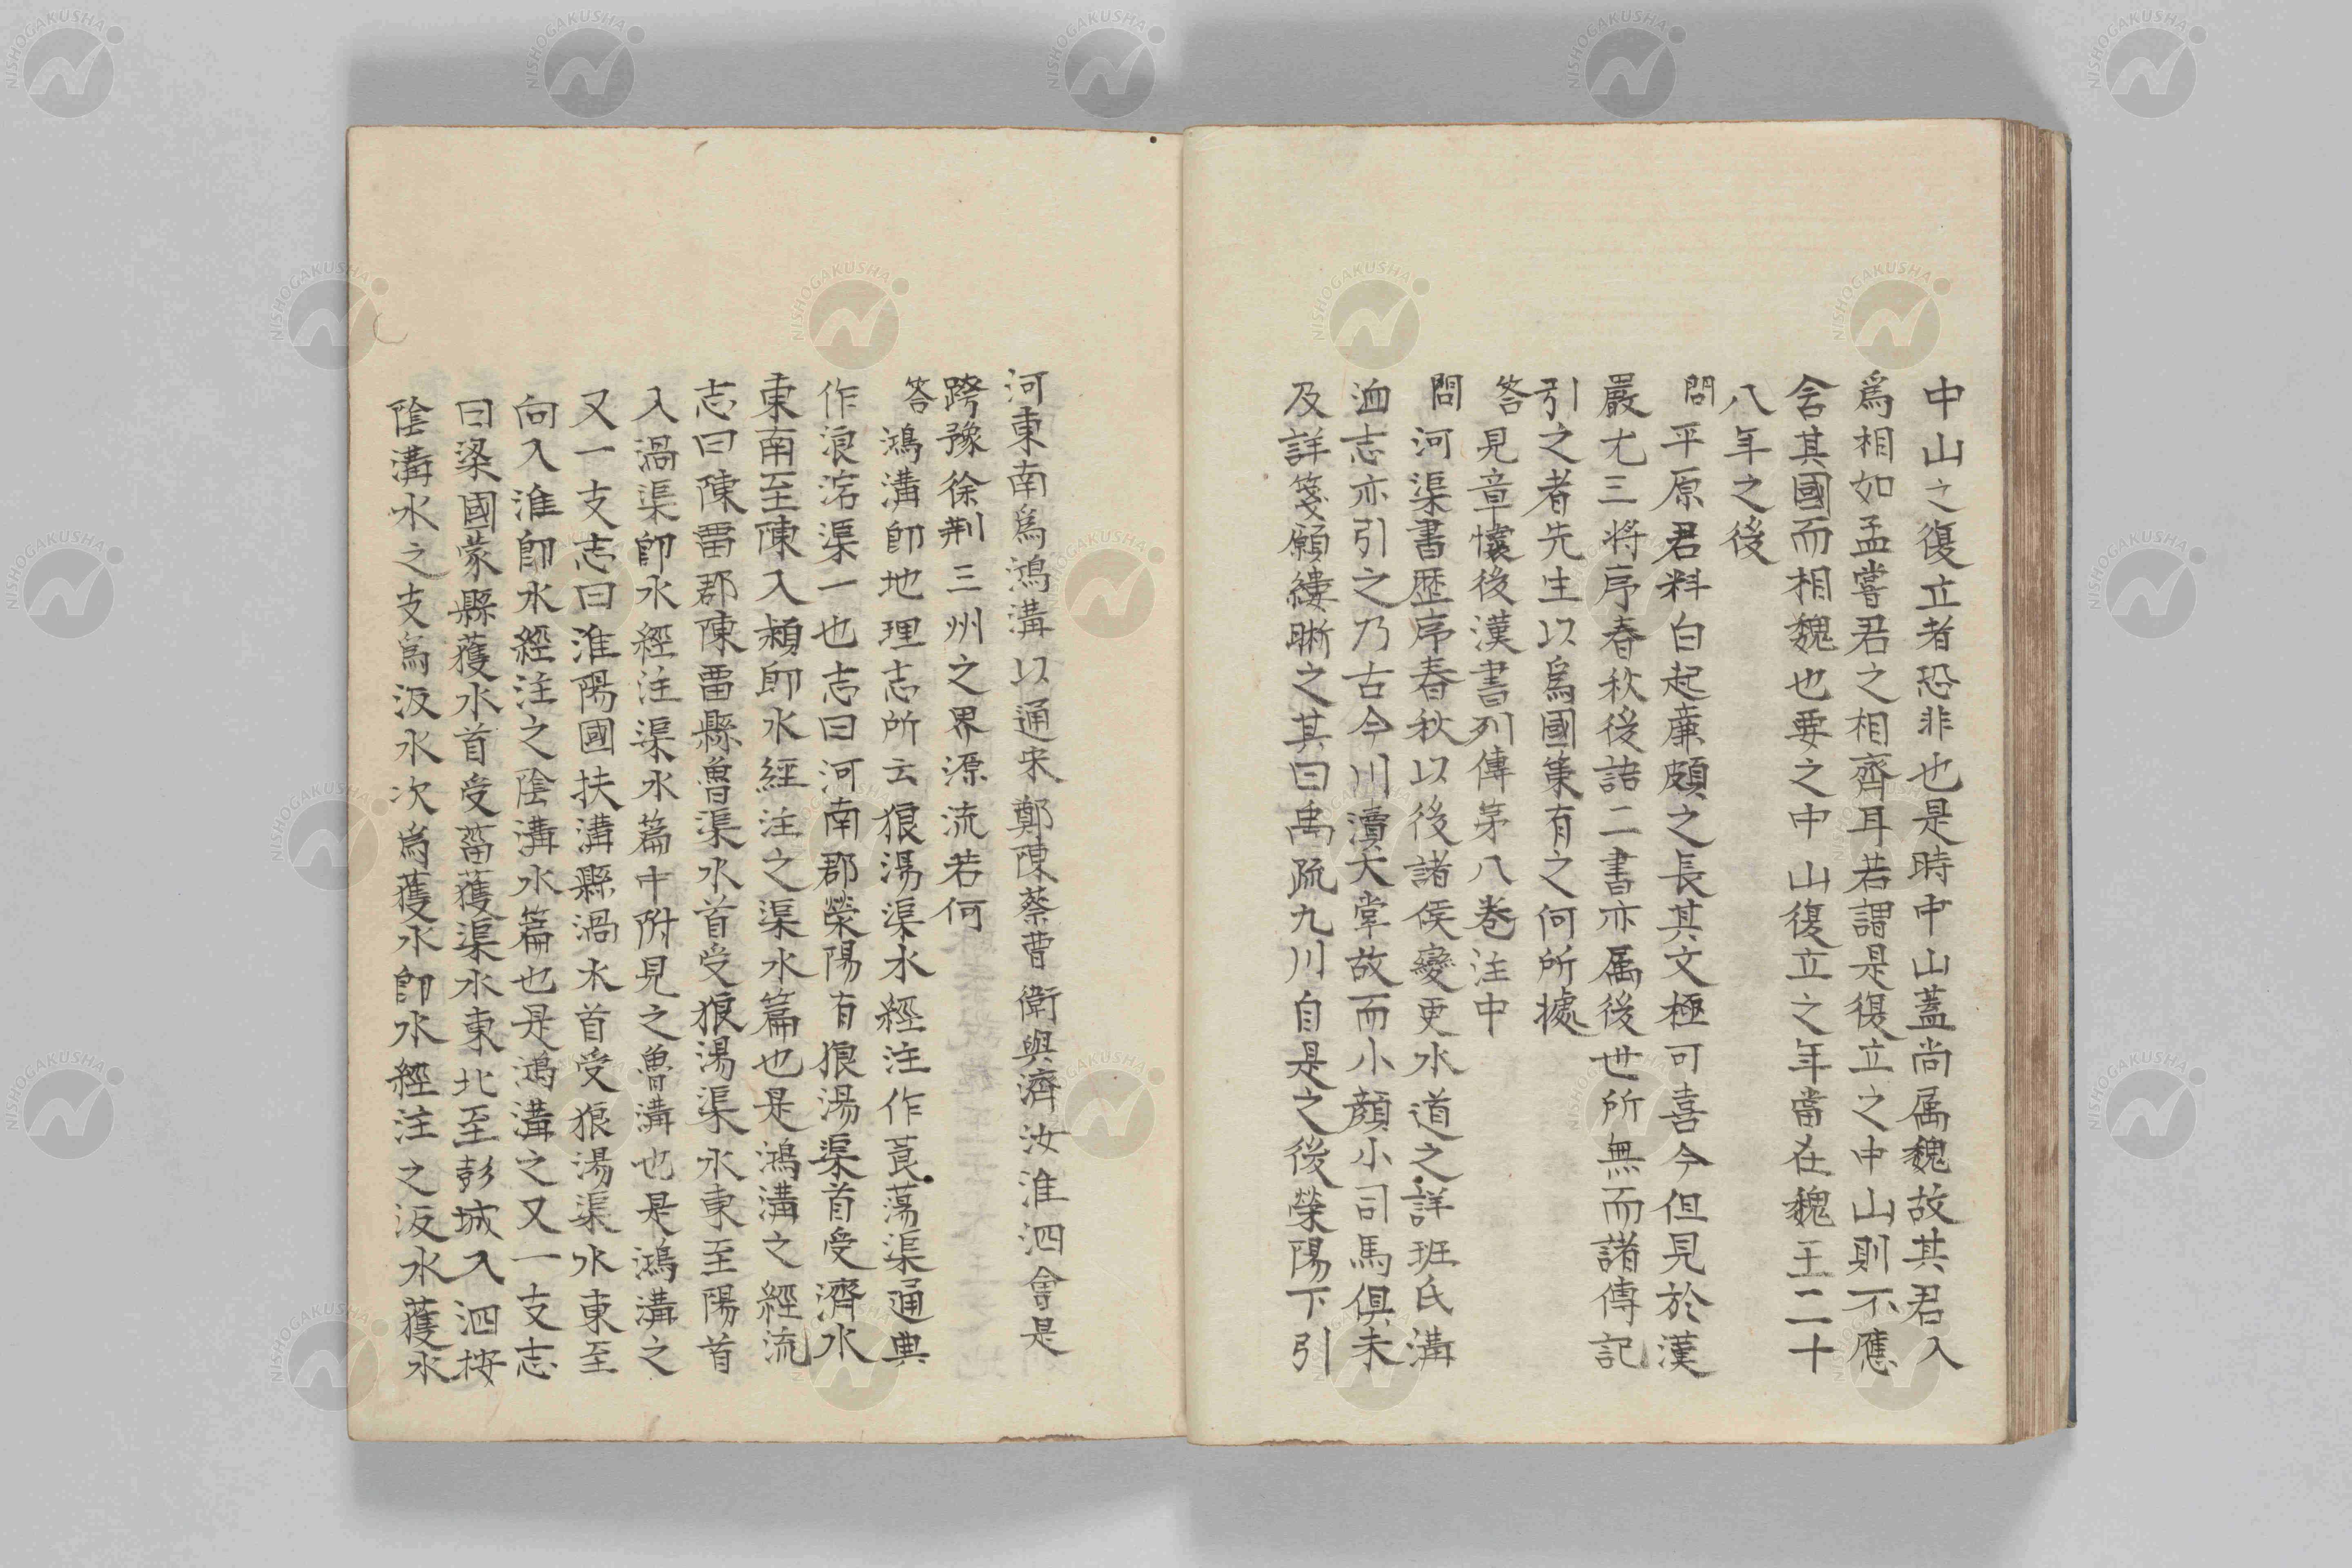 中山之復立者恐非也是時中山蓋尚属魏故其君入
爲相如孟嘗君之相齊耳若謂是復立之中山則不應
舍其國而相魏也要之中山復立之年當在魏王二十
八年之後
問平原君料白起廉頗之長其文極可喜今但見於漢
嚴尤三将序春秋後語二書亦属後世所無而諸傳記
引之者先生以爲國策有之何所據
答見章懐後漢書列傳苐八巻注中
問河渠書歴序春秋以後諸侯變更水道之詳班氏溝
洫志亦引之乃古今川瀆大掌故而小顔小司馬俱未
及詳箋願縷晰之其曰禹疏九川自是之後滎陽下引
河東南爲鴻溝以通宋鄭陳蔡曹衛與濟汝淮泗會是
跨豫徐荆三州之界源流若何
答鴻溝卽地理志所云狼湯渠水經注作莨蕩渠通典
作浪宕渠一也志曰河南郡滎陽有狼湯渠首受濟水
東南至陳入潁卽水經注之渠水篇也是鴻溝之經流
志曰陳畱郡陳畱縣魯渠水首受狼湯渠水東至陽首
入渦渠卽水經注渠水篇中附見之魯溝也是鴻溝之
又一支志曰淮陽國扶溝縣渦水首受狼湯渠水東至
向入淮卽水經注之陰溝水篇也是鴻溝之又一支志
曰梁國蒙縣獲水首受甾獲渠水東北至彭城入泗按
陰溝水之支爲汳水次爲獲水卽水經注之汳水獲水
NISHOGAKUSHA